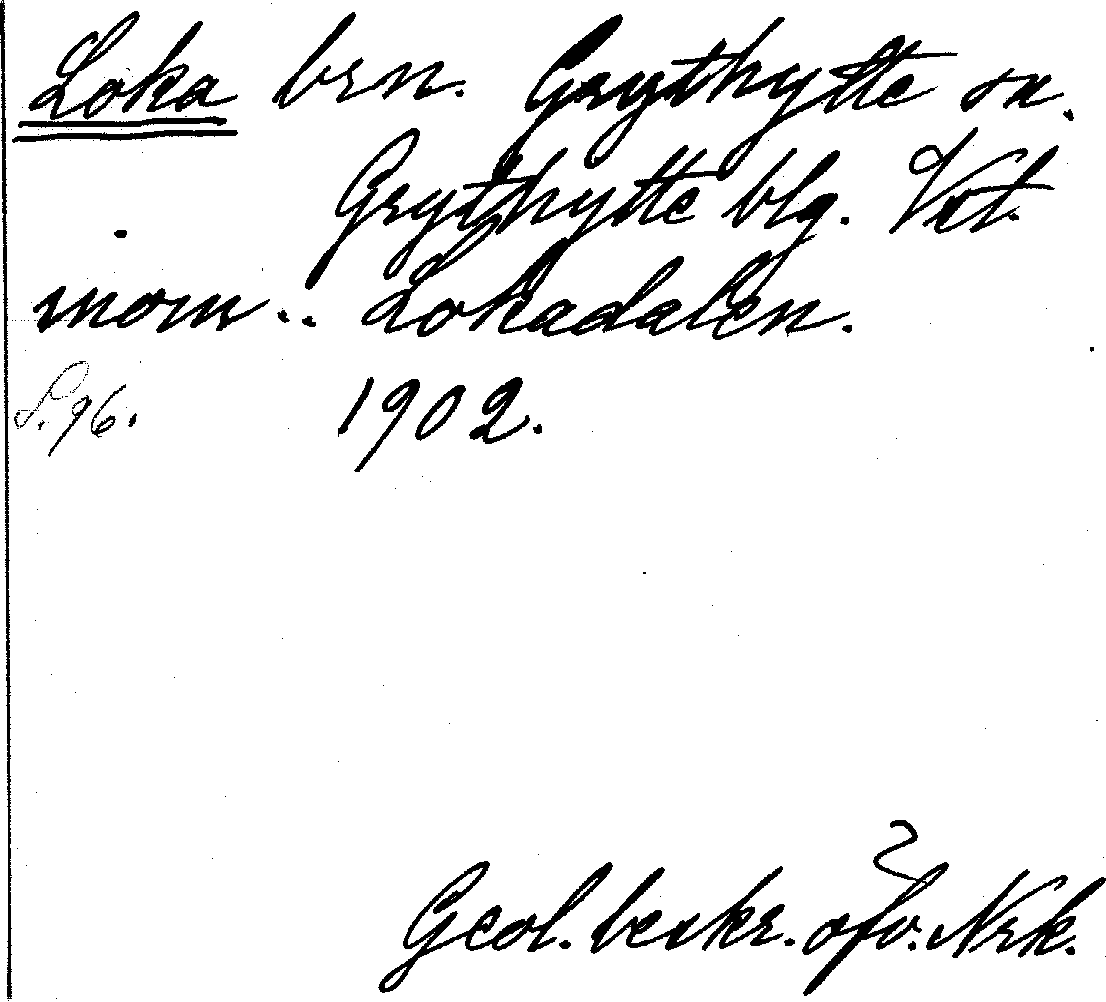 Loka brn. Grythytte sn.
Grythytte blg. Vrt.
inom .. Lokadalen.
S. 96. 1902.
Geol. beskr. öfv. Nrk.